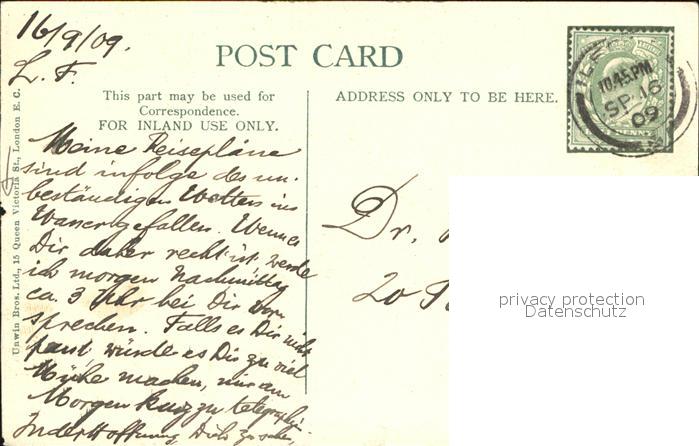 16/9/09.
L. F.
POST CARD
This part may be used for
Correspondence.
FOR INLAND USE ONLY.
ADDRESS ONLY TO BE HERE.
10.45 PM
SP 16
09
Meine Reisepläne
sind infolge des un-
beständigen Wetters ins
Wasser gefallen. Wenn es
Dir daher recht ist, werde
ich morgen Nachmittag
ca. 3 Uhr bei Dir vor-
sprechen. Falls es Dir nicht
passt, würde es Dir zu viel
Mühe machen, mir am
Morgen kurz zu telegraphi-
In der Hoffnung Dich zu sehen
Dr.
20
Unwin Bros. Ltd., 15 Queen Victoria St., London E. C.
privacy protection
Datenschutz